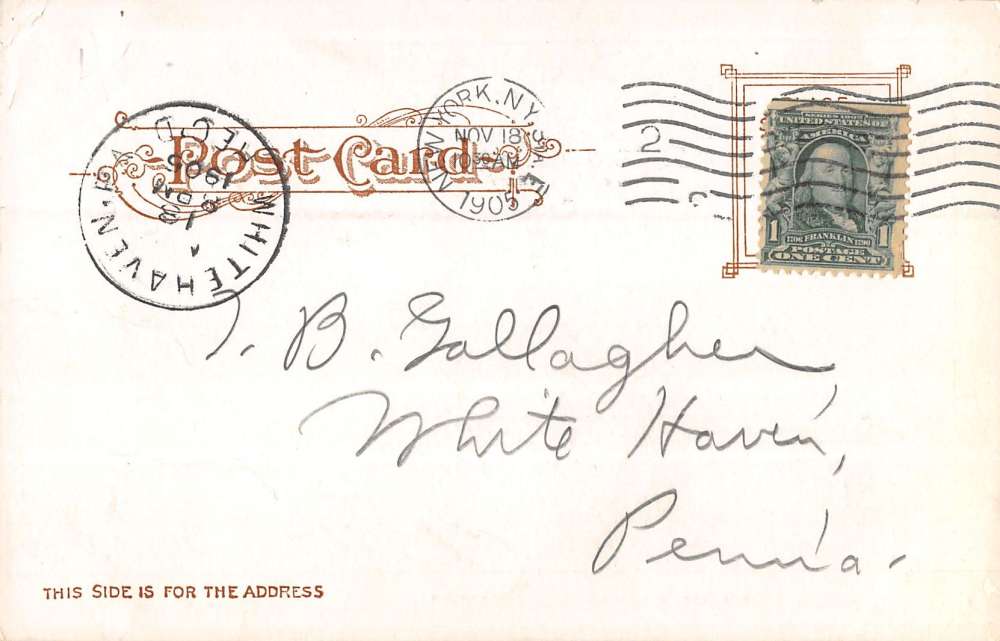 Post Card
NEW YORK, N.Y. STA. E
NOV 18
10 30 AM
1905
2
WHITE HAVEN
REC'D
1905
PM
SERIES 1902
UNITED STATES OF
AMERICA
1 1706 FRANKLIN 1790 1
POSTAGE
ONE CENT
T. B. Gallagher
White Haven,
Penn'a.
THIS SIDE IS FOR THE ADDRESS